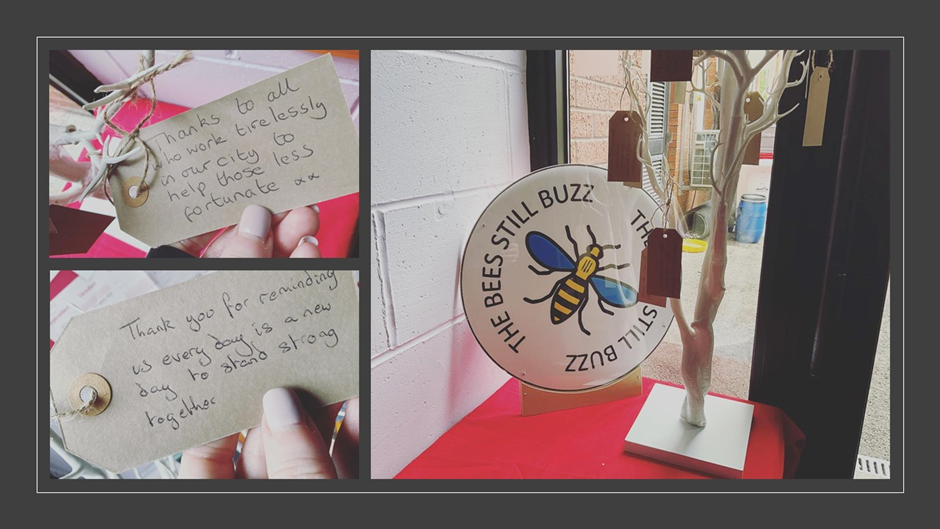 Thanks to all
who work tirelessly
in our city to
help those less
fortunate xx
Thank you for reminding
us every day is a new
day to stand strong
together
THE BEES STILL BUZZ
STILL BUZZ